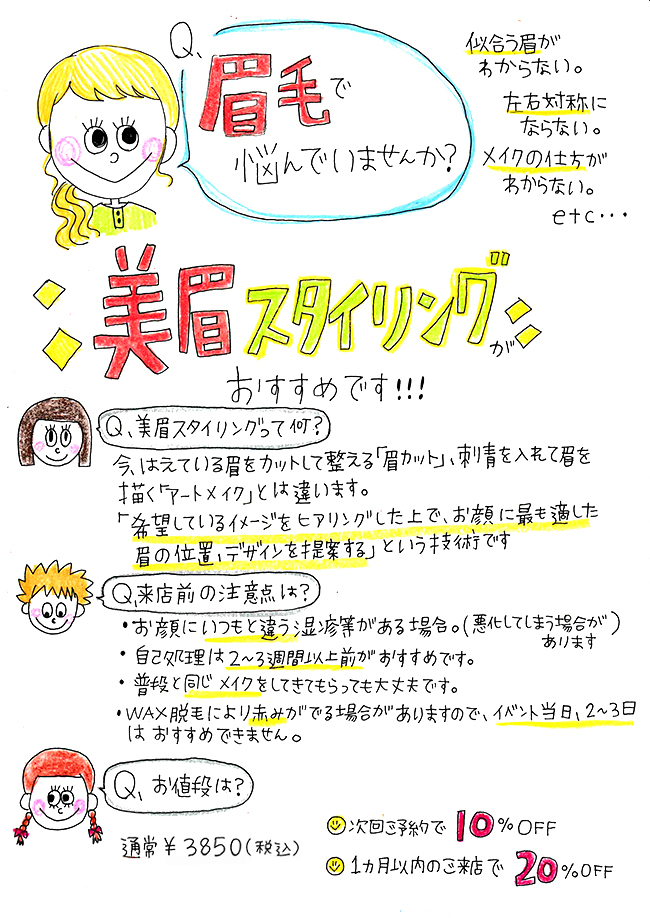 Q、
眉毛で
悩んでいませんか?
似合う眉が
わからない。
左右対称に
ならない。
メイクの仕方が
わからない。
etc・・・
美眉スタイリングが
おすすめです!!!
Q、美眉スタイリングって何?
今、はえている眉をカットして整える「眉カット」、刺青を入れて眉を
描く「アートメイク」とは違います。
「希望しているイメージをヒアリングした上で、お顔に最も適した
眉の位置、デザインを提案する」という技術です
Q、来店前の注意点は?
・お顔にいつもと違う湿疹等がある場合。(悪化してしまう場合が
あります)
・自己処理は2〜3週間以上前がおすすめです。
・普段と同じメイクをしてきてもらっても大丈夫です。
・WAX脱毛により赤みがでる場合がありますので、イベント当日、2〜3日
はおすすめできません。
Q、お値段は?
通常¥3850(税込)
次回ご予約で10%OFF
1カ月以内のご来店で20%OFF